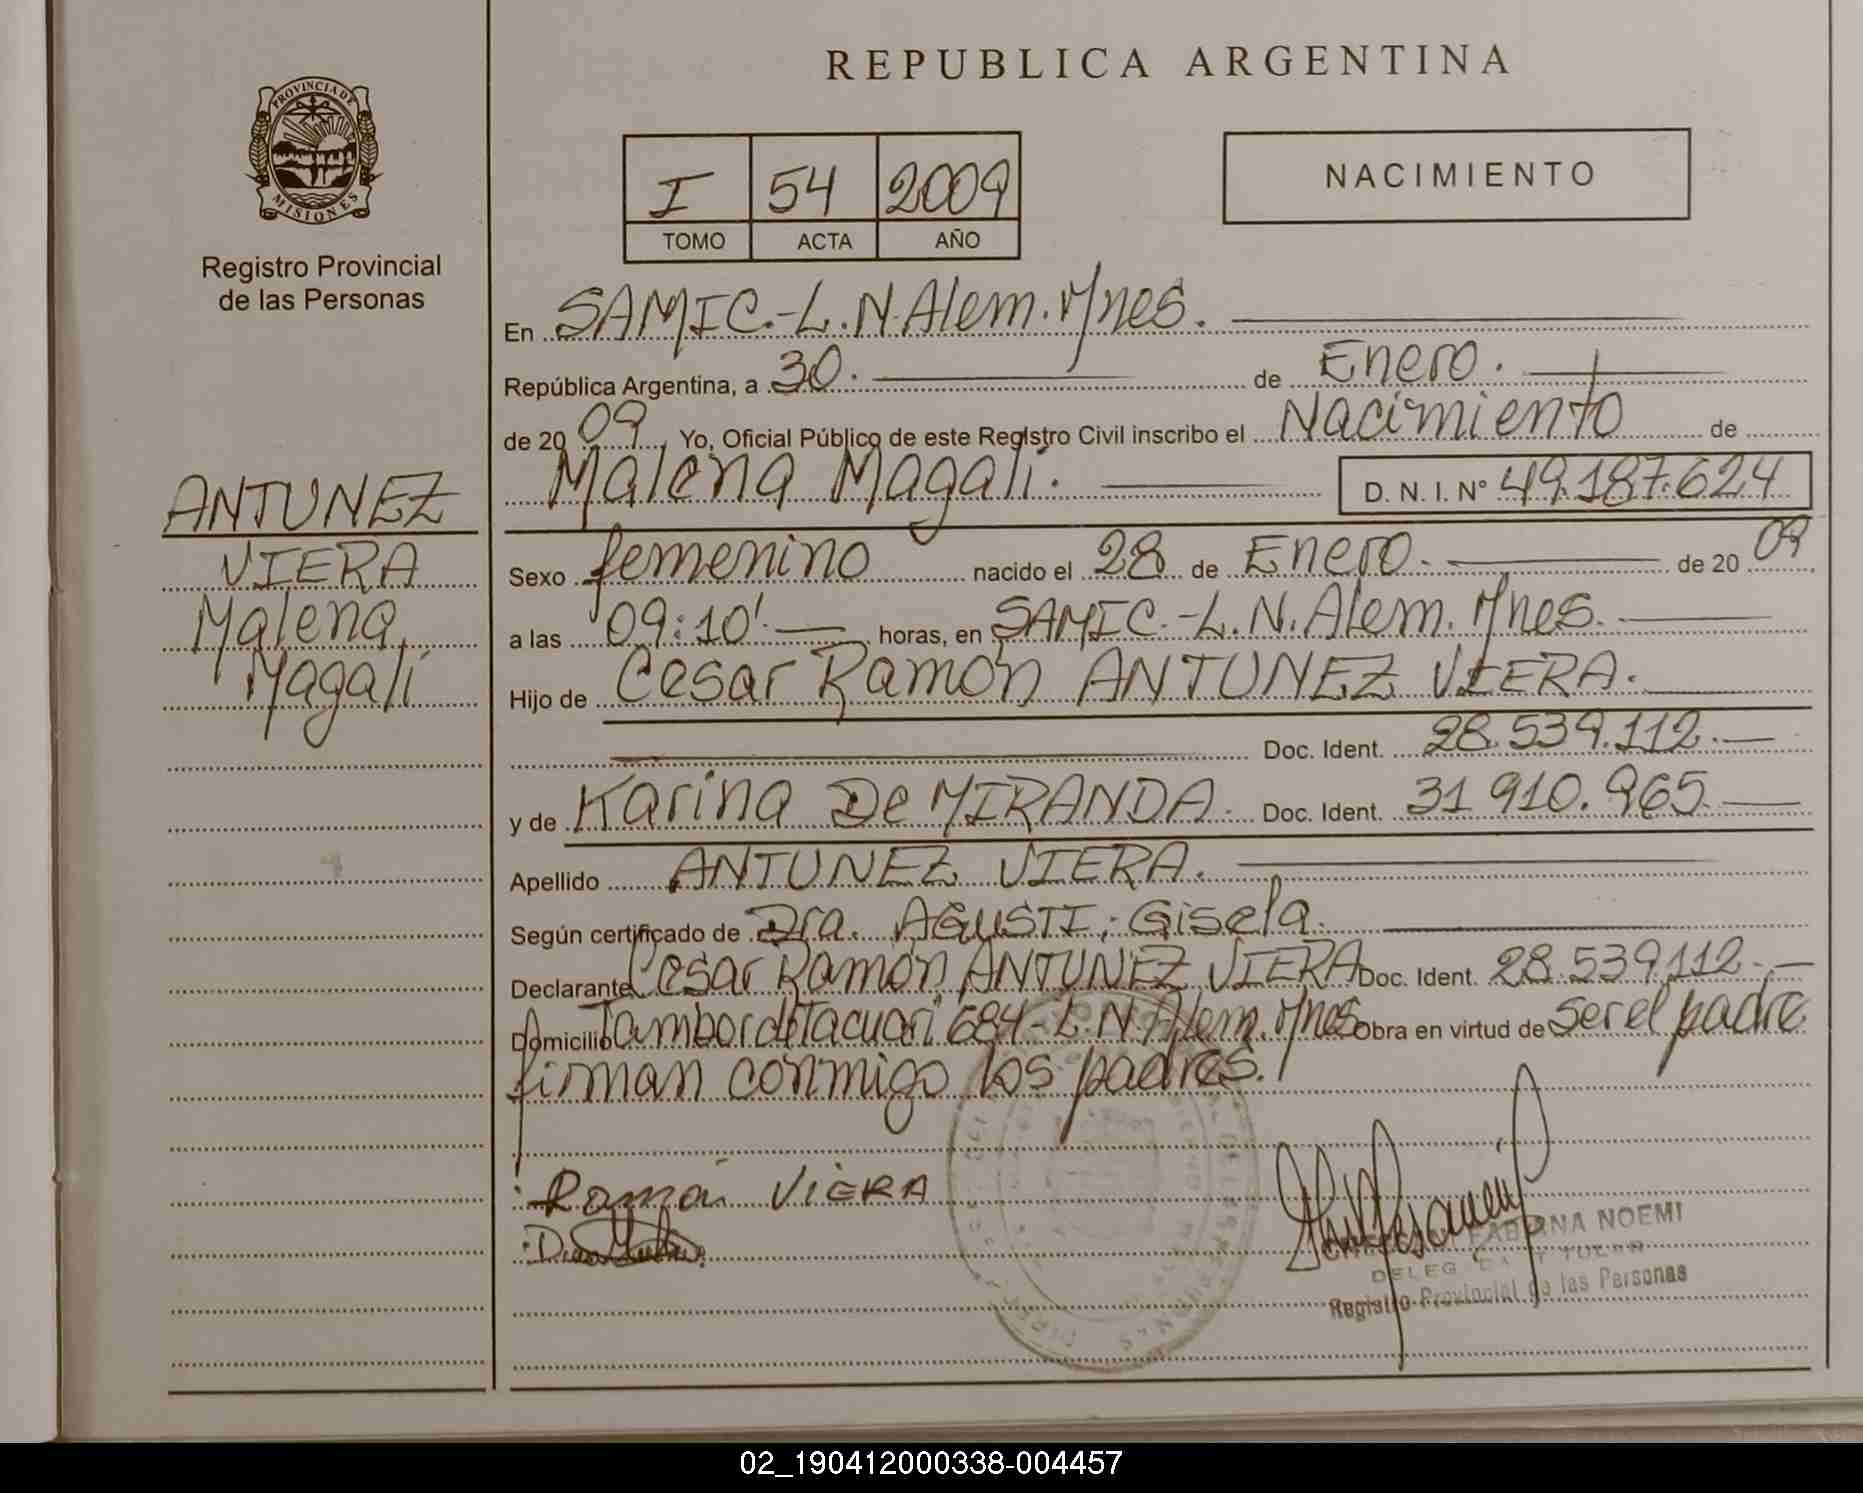 REPUBLICA ARGENTINA
PROVINCIA DE
MISIONES
Registro Provincial
de las Personas
I 54 2009
TOMO ACTA AÑO
NACIMIENTO
En SAMIC.-L.N.Alem.Mnes.
República Argentina, a 30. de Enero.
de 20 09, Yo, Oficial Público de este Registro Civil inscribo el Nacimiento de
Malena Magalí. D. N. I. N° 49.187.624
ANTUNEZ
VIERA
Malena
Magalí
Sexo femenino nacido el 28 de Enero. de 20 09
a las 09:10' horas, en SAMIC.-L.N.Alem.Mnes.
Hijo de Cesar Ramón ANTUNEZ VIERA.
Doc. Ident. 28.539.112.
y de Karina De MIRANDA. Doc. Ident. 31 910.965.
Apellido ANTUNEZ VIERA.
Según certificado de Dra. AGUSTI, Gisela.
Declarante Cesar Ramón ANTUNEZ VIERA Doc. Ident. 28.539.112.
Domicilio Tambor de Tacuarí 684-L.N.Alem.Mnes Obra en virtud de ser el padre
firman conmigo los padres.
Ramón VIERA
FABIANA NOEMI
Registro Provincial de las Personas
02_190412000338-004457